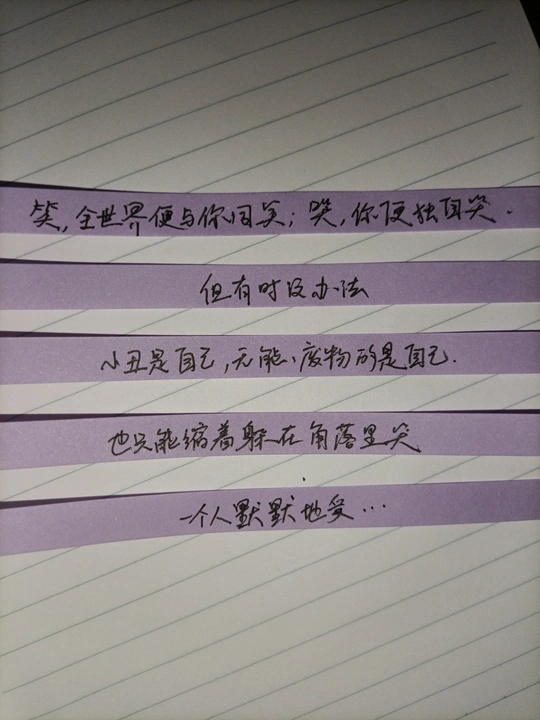 笑，全世界便与你同笑；哭，你便独自哭.
但有时没办法
小丑是自己，无能、废物的是自己.
也只能缩着躲在角落里哭
一个人默默地受…